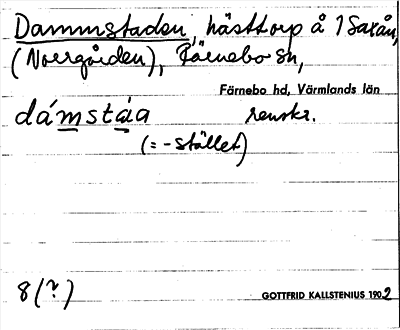 Dammstaden, hästtorp å 1 Saxån,
(Norrgården), Färnebo sn,
Färnebo hd, Värmlands län
dámstáa renskr.
(= -stället)
8 (?)
GOTTFRID KALLSTENIUS 1902